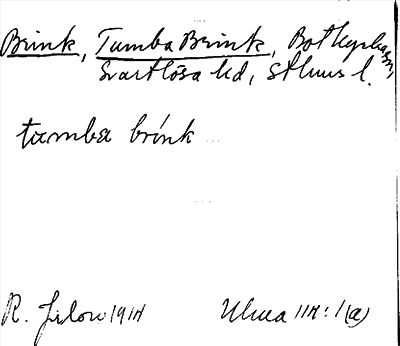 Brink, Tumba Brink, Botkyrka sn,
Svartlösa hd, Sthlms l.
tumba brink
R. Jirlow 1914
Ulma 111:1(a)